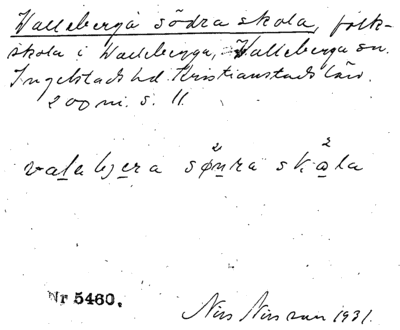 Valleberga södra skola, folk-
skola i Valleberga, Valleberga sn.
Ingelstads hd. Kristianstads län.
200 m. S. 11
valabjera sønra skåla
Nr 5460.
Nils Nilsson 1931.